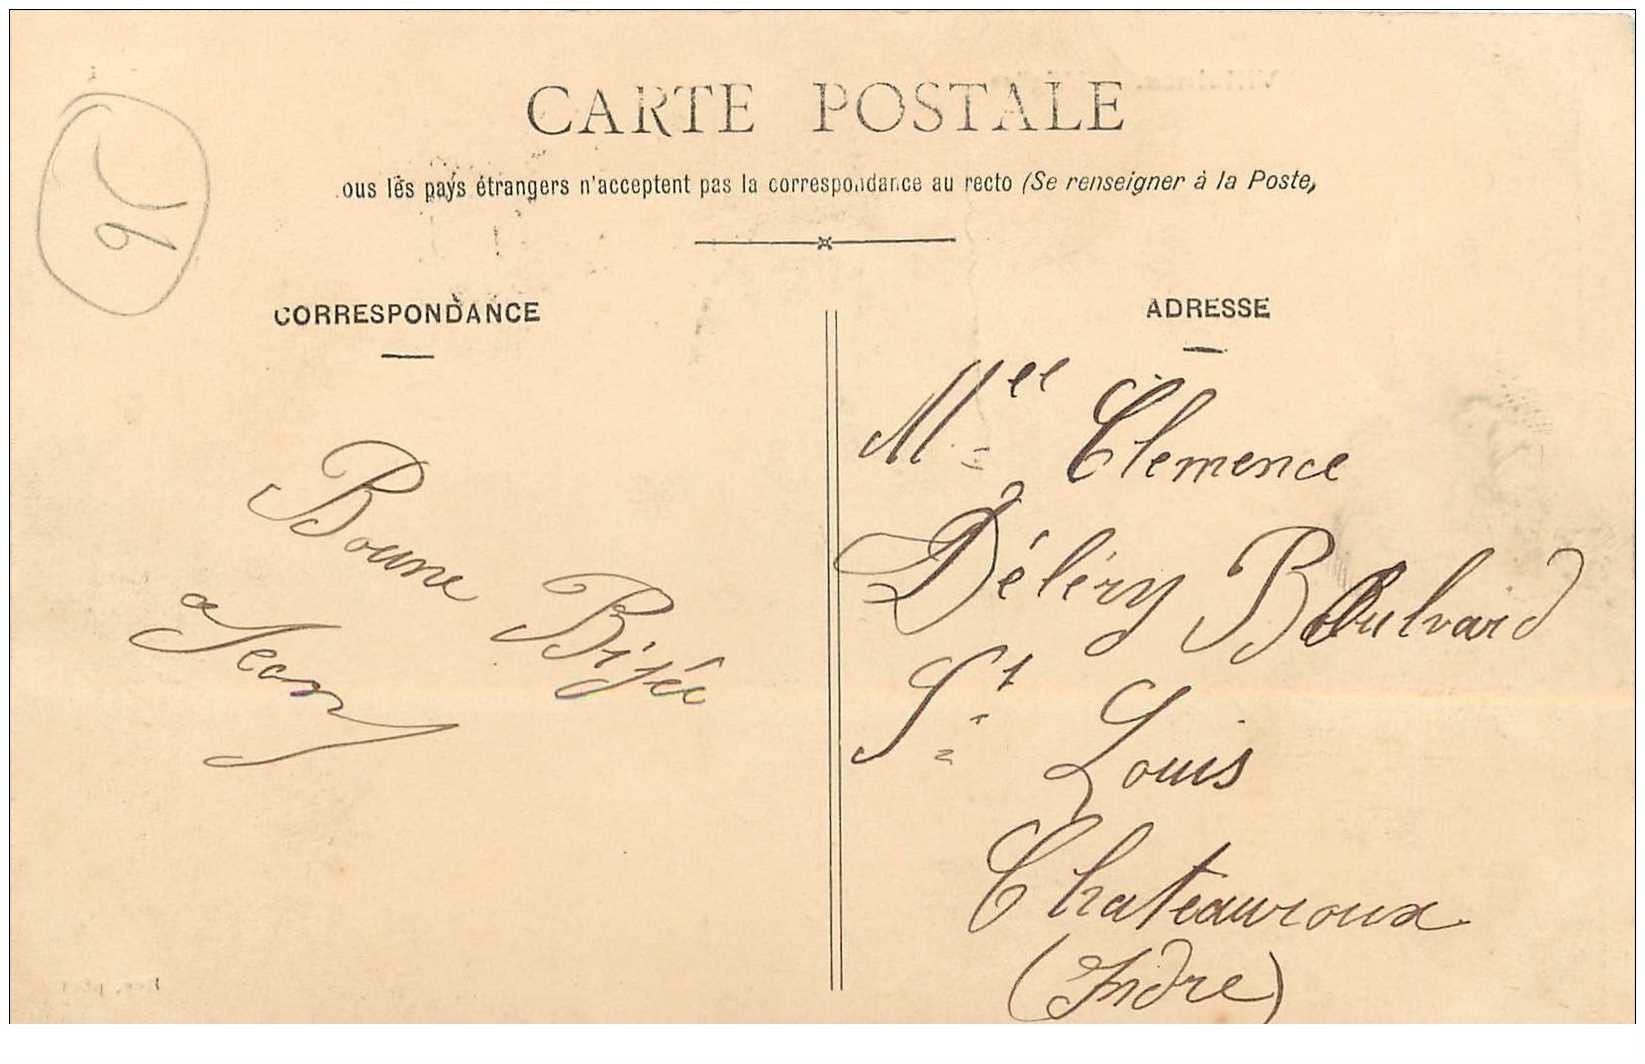 CARTE POSTALE
ous les pays étrangers n'acceptent pas la correspondance au recto (Se renseigner à la Poste,
CORRESPONDANCE
Bonne Bisée
Jean
ADRESSE
Mlle Clemence
Déléry Boulvard
St Louis
Chateauroux
(Indre)